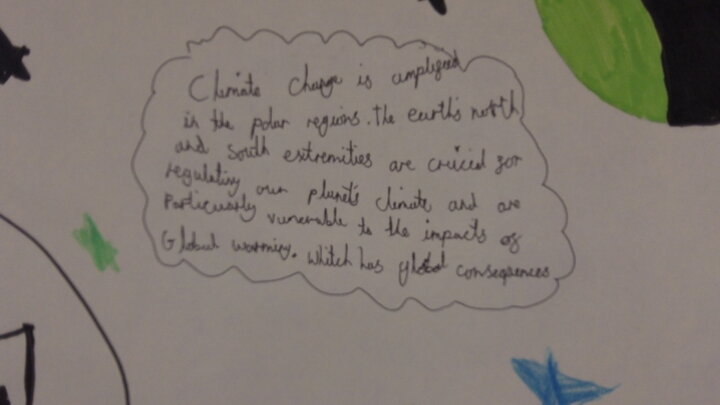 Climate Change is amplified
in the polar regions. The earth's north
and south extremities are crucial for
regulating our planet's climate and are
Particuarly vunerable to the impacts of
Global warming. Whitch has global consequences